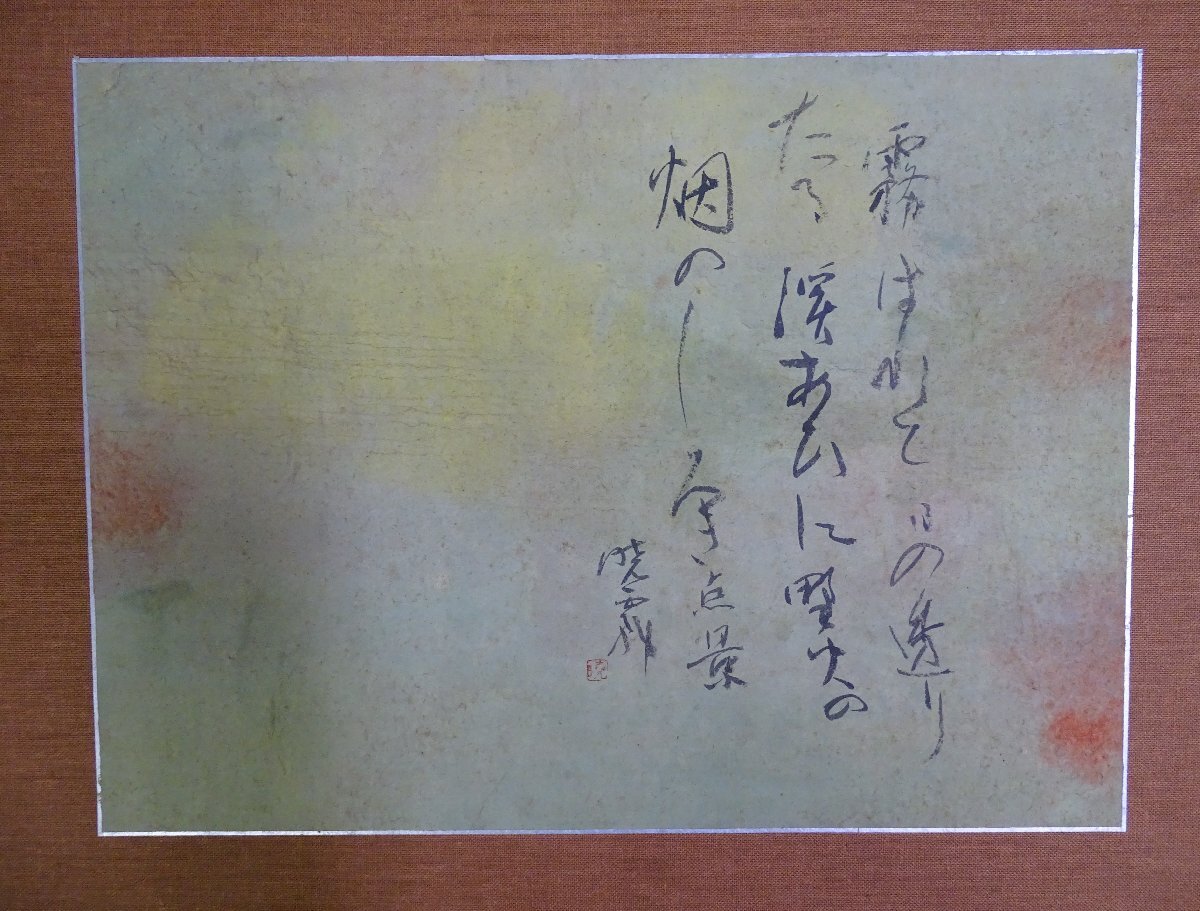 霧はれて日の透り
たる渓あひに野火の
烟のしろき点景
暁